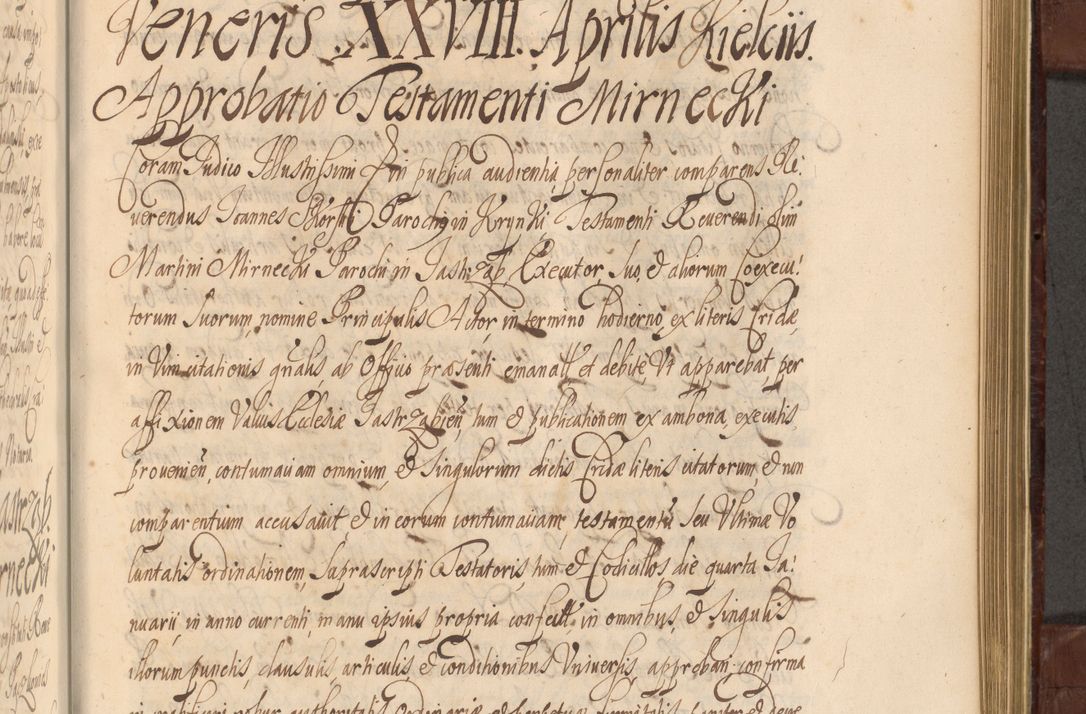 Veneris XXVIII. Aprilis Kielciis.
Approbatio Testamenti Mirnecki
Coram Judico Illustrissimi in publica audientia personaliter comparens Re:
verendus Joannes Skorski Parochus in Krynki Testamenti Reverendi olim
Martini Mirnecki Parochi in Jastrząb Executor suo, et aliorum Coexecu:
torum suorum, nomine Principalis Actor in termino hodierno, ex literis Cridæ
in Vim citationis gnalis ab Officio præsenti emanatt et debite Vt apparebat, per
affixionem Valuis Ecclesiæ Jastrzabien, tum et publicationem ex ambona, executis
provenien, contumaciam omnium, et singulorum dictis Cridæ literis citatorum, et non
comparentium accusavit et in eorum contumaciam, testamentū seu Vltimæ Vo
luntatis ordinationem, supra scripti Testatoris, tum et Codicillos die quarta Ja:
nuarii, in anno currenti, manu ipsius propria confectt, in omnibus, et singulis
illorum punctis, clausulis, articulis, et conditionibus Vniversis, approbari confirma